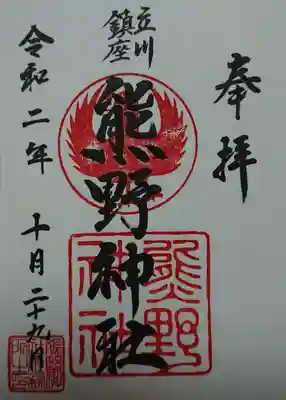 奉拝
立川
鎮座
熊野神社
熊野
神社
令和二年 十月二十九日